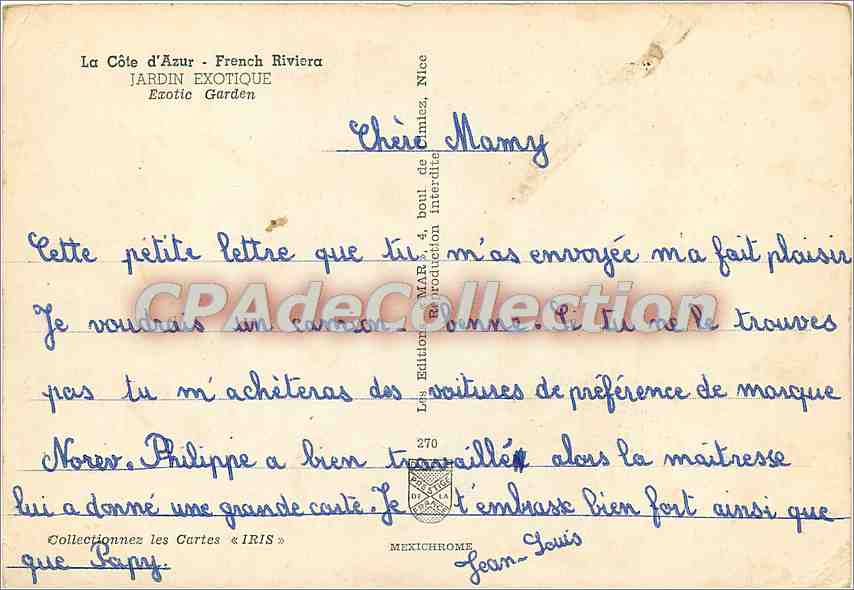 La Côte d'Azur - French Riviera
JARDIN EXOTIQUE
Exotic Garden
Les Edition « MAR », 4, boul de Cimiez, Nice
Reproduction interdite
Chère Mamy
Cette pétite lettre que tu m'as envoyée ma fait plaisir
CPAdeCollection
Je voudrais un camion benne. Si tu ne le trouves
pas tu m'achèteras des voitures de préférence de marque
270
Norev. Philippe a bien travaillé alors la maîtresse
lui a donné une grande carte. Je t'embrasse bien fort ainsi que
DE LA
FRANCE
Collectionnez les Cartes « IRIS »
MEXICHROME
que Papy.
Jean-Louis